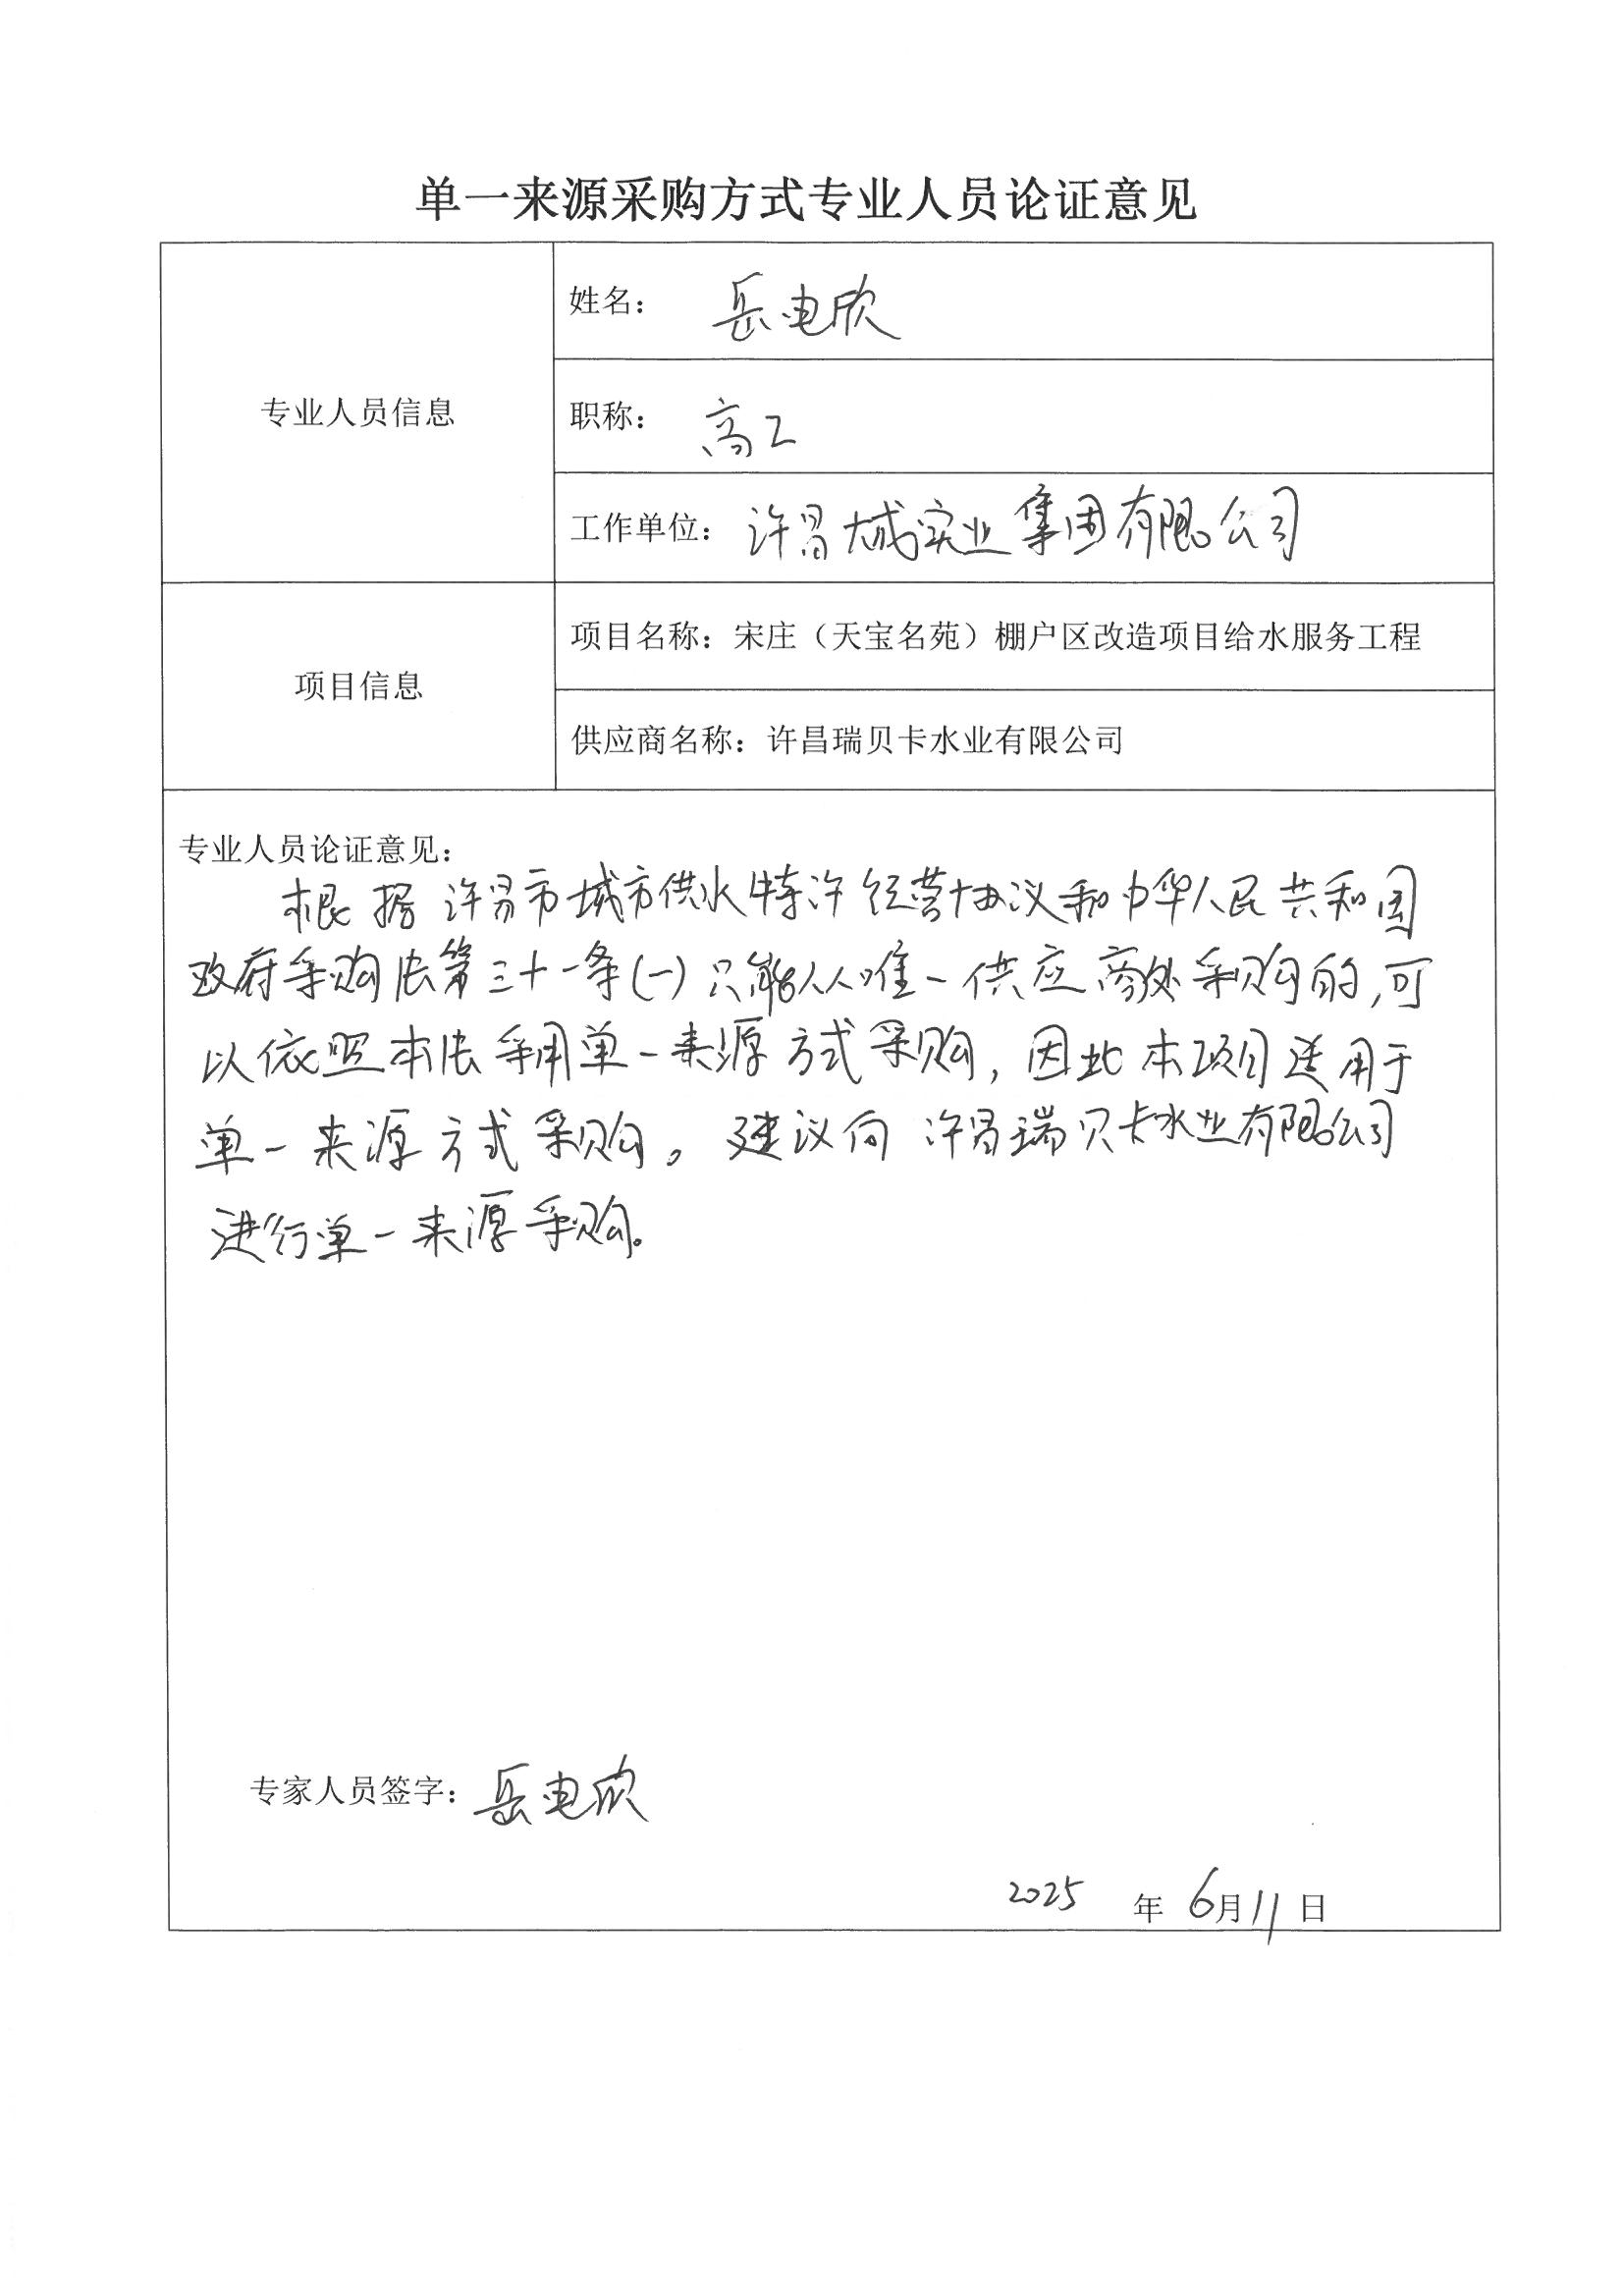 单一来源采购方式专业人员论证意见
专业人员信息
姓名： 岳电欣
职称： 高工
工作单位： 许昌大成实业集团有限公司
项目信息
项目名称：宋庄（天宝名苑）棚户区改造项目给水服务工程
供应商名称：许昌瑞贝卡水业有限公司
专业人员论证意见：
根据许昌市城市供水特许经营协议和中华人民共和国
政府采购法第三十一条(一)只能从唯一供应商处采购的,可
以依照本法采用单一来源方式采购,因此本项目适用于
单一来源方式采购。建议向许昌瑞贝卡水业有限公司
进行单一来源采购。
专家人员签字：岳电欣
2025 年 6月11日